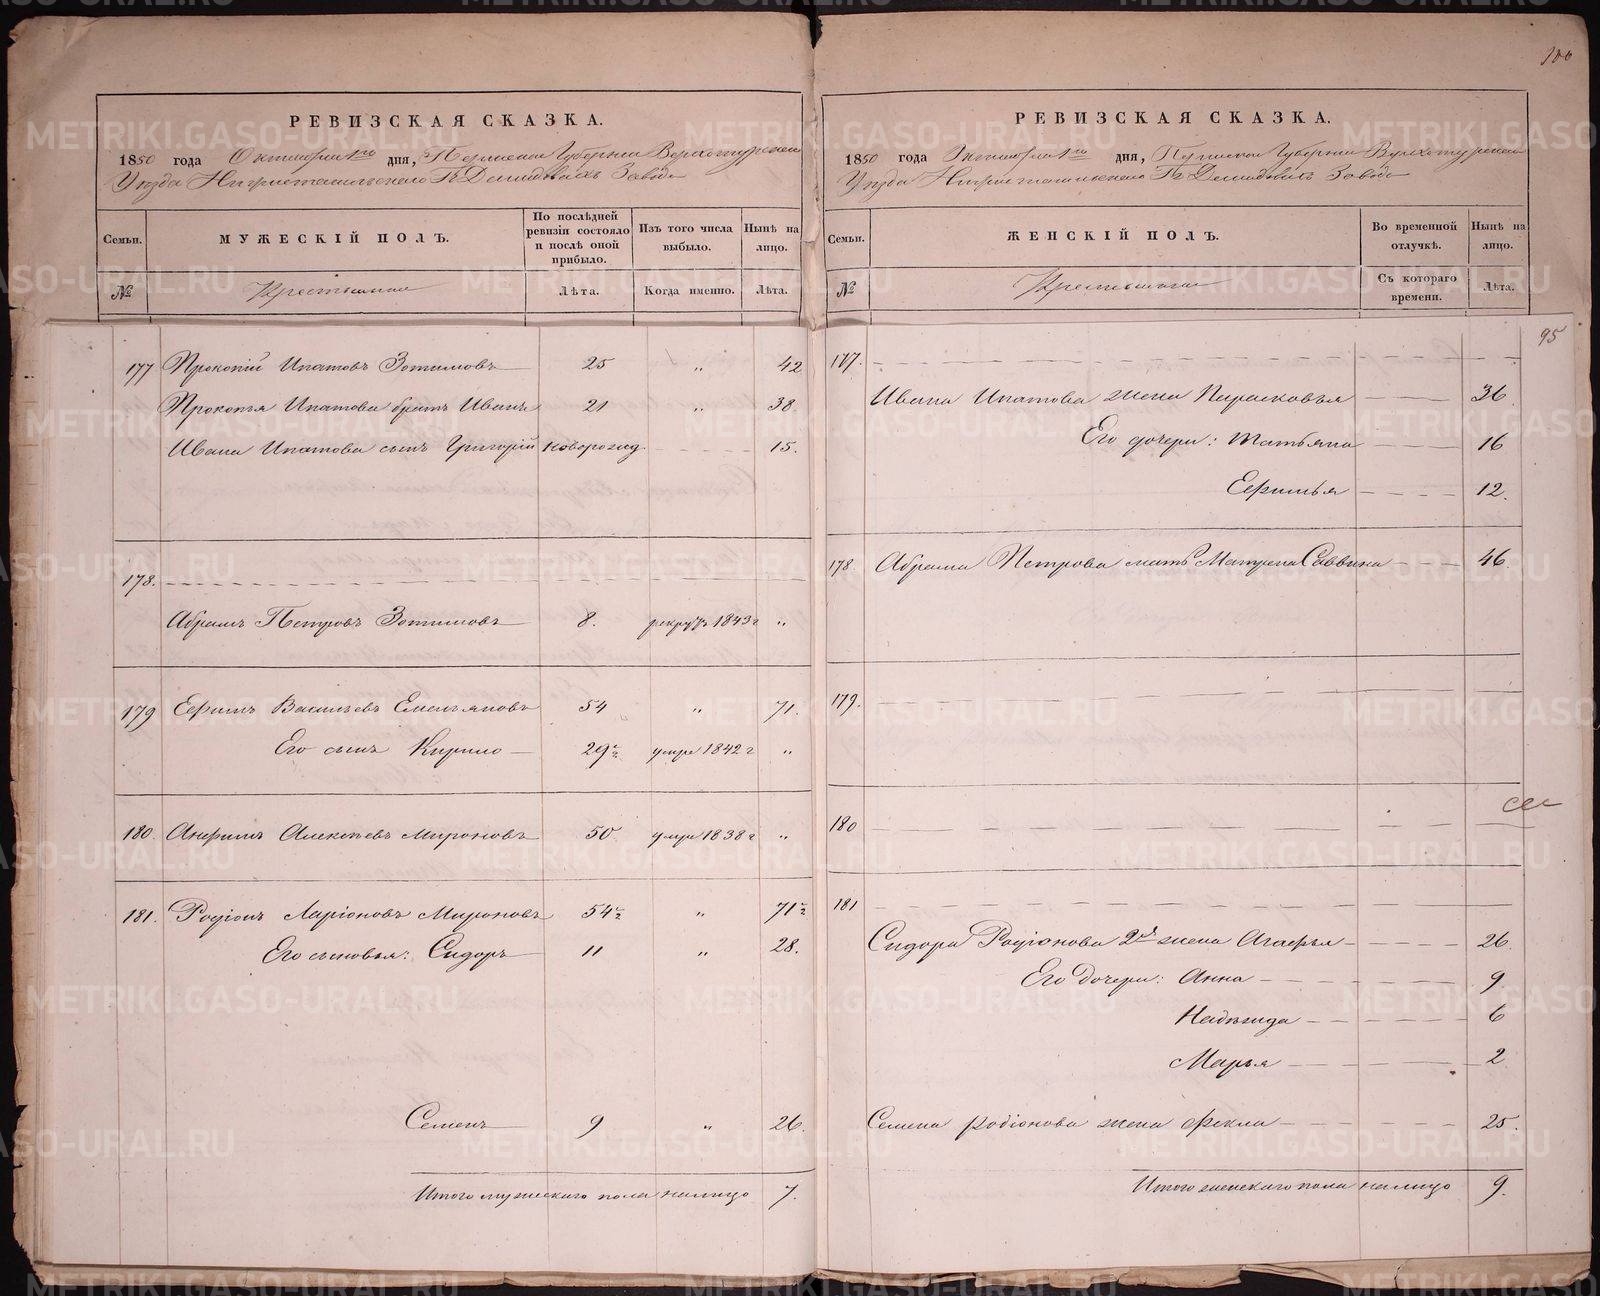 100
РЕВИЗСКАЯ СКАЗКА.
1850 года Октября 1го дня, Пермской Губернии Верхотурскаго
Уѣзда Нижнетагильскаго Гг Демидовыхъ Завода
Семьи. МУЖЕСКІЙ ПОЛЪ. По послѣдней ревизіи состояло и послѣ оной прибыло. Изъ того числа выбыло. Нынѣ на лицо.
№ Крестьяне Лѣта. Когда именно. Лѣта.
177 Прокопій Ипатовъ Зотимовъ 25 „ 42
Прокопья Ипатова братъ Иванъ 21 „ 38.
Ивана Ипатова сынъ Григорій новорожд 15.
178.
Абрамъ Петровъ Зотимовъ 8. рекрутъ 1843 г „
179 Ефимъ Васильевъ Емельяновъ 54 „ 71.
Его сынъ Кирило 29½ умре 1842 г „
180. Анфимъ Алексѣевъ Мироновъ 50 умре 1838 г „
181. Родіонъ Ларіоновъ Мироновъ 54½ „ 71½
Его сыновья: Сидоръ 11 „ 28.
Семенъ 9 „ 26.
Итого мужескаго пола налицо 7.
РЕВИЗСКАЯ СКАЗКА.
1850 года Октября 1го дня, Пермской Губернии Верхотурскаго
Уѣзда Нижнетагильскаго Гг Демидовыхъ Завода
Семьи. ЖЕНСКІЙ ПОЛЪ. Во временной отлучкѣ. Нынѣ на лицо.
№ Крестьянки Съ котораго времени. Лѣта.
95
177.
Ивана Ипатова жена Парасковья 36.
Его дочери: Татьяна 16
Ефимья 12.
178. Абрама Петрова мать Матрена Саввина 46.
179.
180
181
Сидора Родіонова 2я жена Агафья 26.
Его дочери: Анна 9
Надѣжда 6
Марья 2
Семена Родіонова жена Фекла 25.
Итого женскаго пола налицо 9.
METRIKI.GASO-URAL.RU